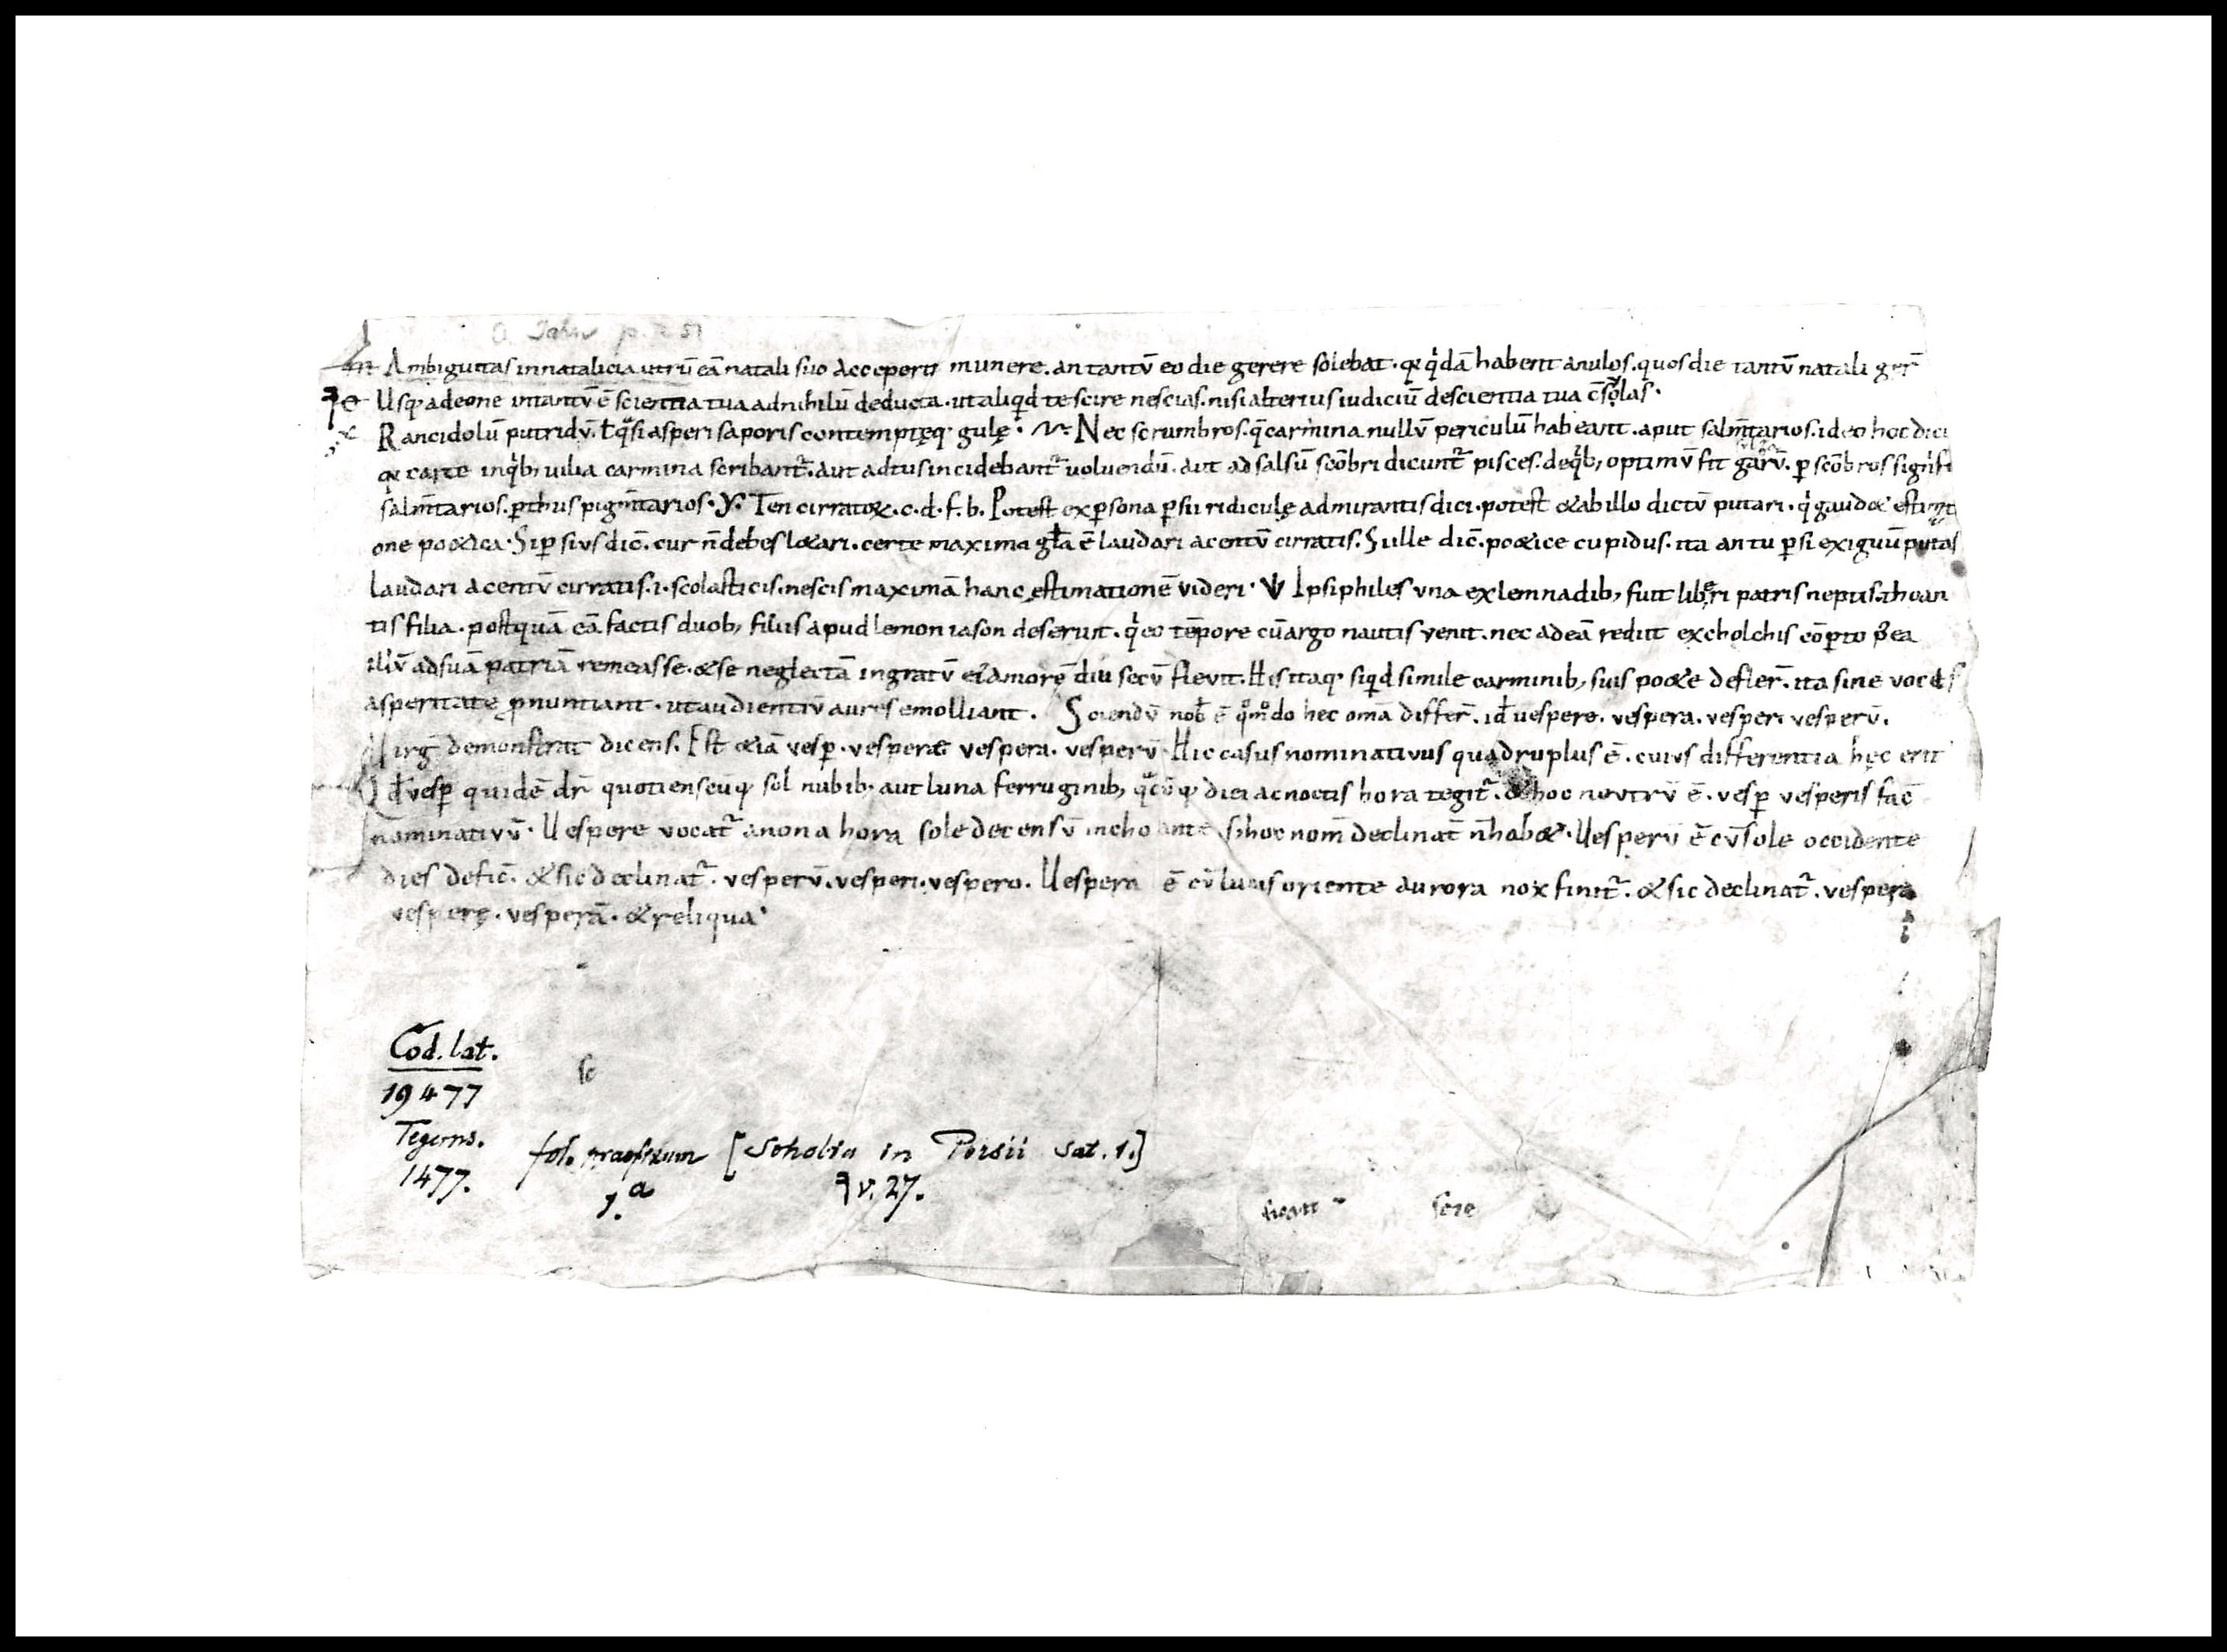 O. Jahn p.
Ambiguitas in natalicia. utrū eā natali suo acceperit munere. an tantū eo die gerere solebat. q& q̇dā habent anulos. quos die tantū natali ger̄
Usq; adeone intantū ē scientia tua adnihilū deducta. ut aliqd te scire nescias. nisi alterius iudiciū descientia tua c̄solas.
Rancidolū putridū. ł q̈si asperi saporis contemptęq; gulę. Nec scrumbros. q̄ carmina nullū periculū habeant. aput salm̄tarios. ideo hoc dici
carte inq̇b; uilia carmina scribant᷑. aut ad tus incidebant᷑ uoluendū. aut ad salsū scōbri dicunt᷑ pisces. deq̇b; optimū fit garū. ꝑ scōbros signifi
salm̄tarios. ꝑ thus pigm̄tarios. Ten cirratoꝝ. c. d. f. b. Potest ex ꝑsona ꝑsii ridiculę admirantis dici. potest & ab illo dictū putari. q̇ gaud& estimati
one po&ica. Si ꝑsius dic̄. cur n̄ debes l&ari. certe maxima gła ē laudari acentū cirratis. Si ille dic̄. po&ice cupidus. ita an tu ꝑsi exiguū putas
laudari acentū cirratis. i. scolasticis. nescis maximā hanc ęstimationē videri. Ipsiphiles una ex lemnadib; fuit liberi patris neptis. thoan
tis filia. postquā eā factis duob; filiis apud lemnon iason deseruit. q̇ eo tēpore cū argo nautis venit. nec ad eā rediit ex cholchis cōꝑto ea
illū ad suā patriā remeasse. & se neglectā ingratū ei᷑ amorē diu secū flevit. His itaq; siqd simile carminib; suis po&e defler̄. ita sine vocis
asperitate ꝓnuntiant. ut audientiū aures emolliant. Sciendū nob ē q̊m̊do hec om̄a differ̄. id ē uespere. vespera. vesperi vesperū.
Uirg demonstrat dicens. Est &iā vesꝑ. vespere vespera. vesperū. Hic casus nominativus quadruplus ē. cuius differentia hęc erit
Qđ vesꝑ quidē dr̄ quotienscūq; sol nubib; aut luna ferruginib; q̈cūq; diei ac noctis hora tegit᷑. & hoc neutrū ē. vesꝑ vesperis fac̄
nominativū. Uespere vocat᷑ anona hora sole decensū inchoante. si hoc nom̄ declinat̄ n̄ hab&. Uesperū ē cū sole occidente
dies defic̄. & sic declinat᷑. vesperū. vesperi. vespero. Uespera ē cū lucis oriente aurora nox finit᷑. & sic declinat᷑. vespera
vesperę. vesperā. & reliqua
Cod. lat.
19477
Tegerns.
1477.
fol. praefixum [Scholia in Persii Sat. 1.]
1.a v. 27.